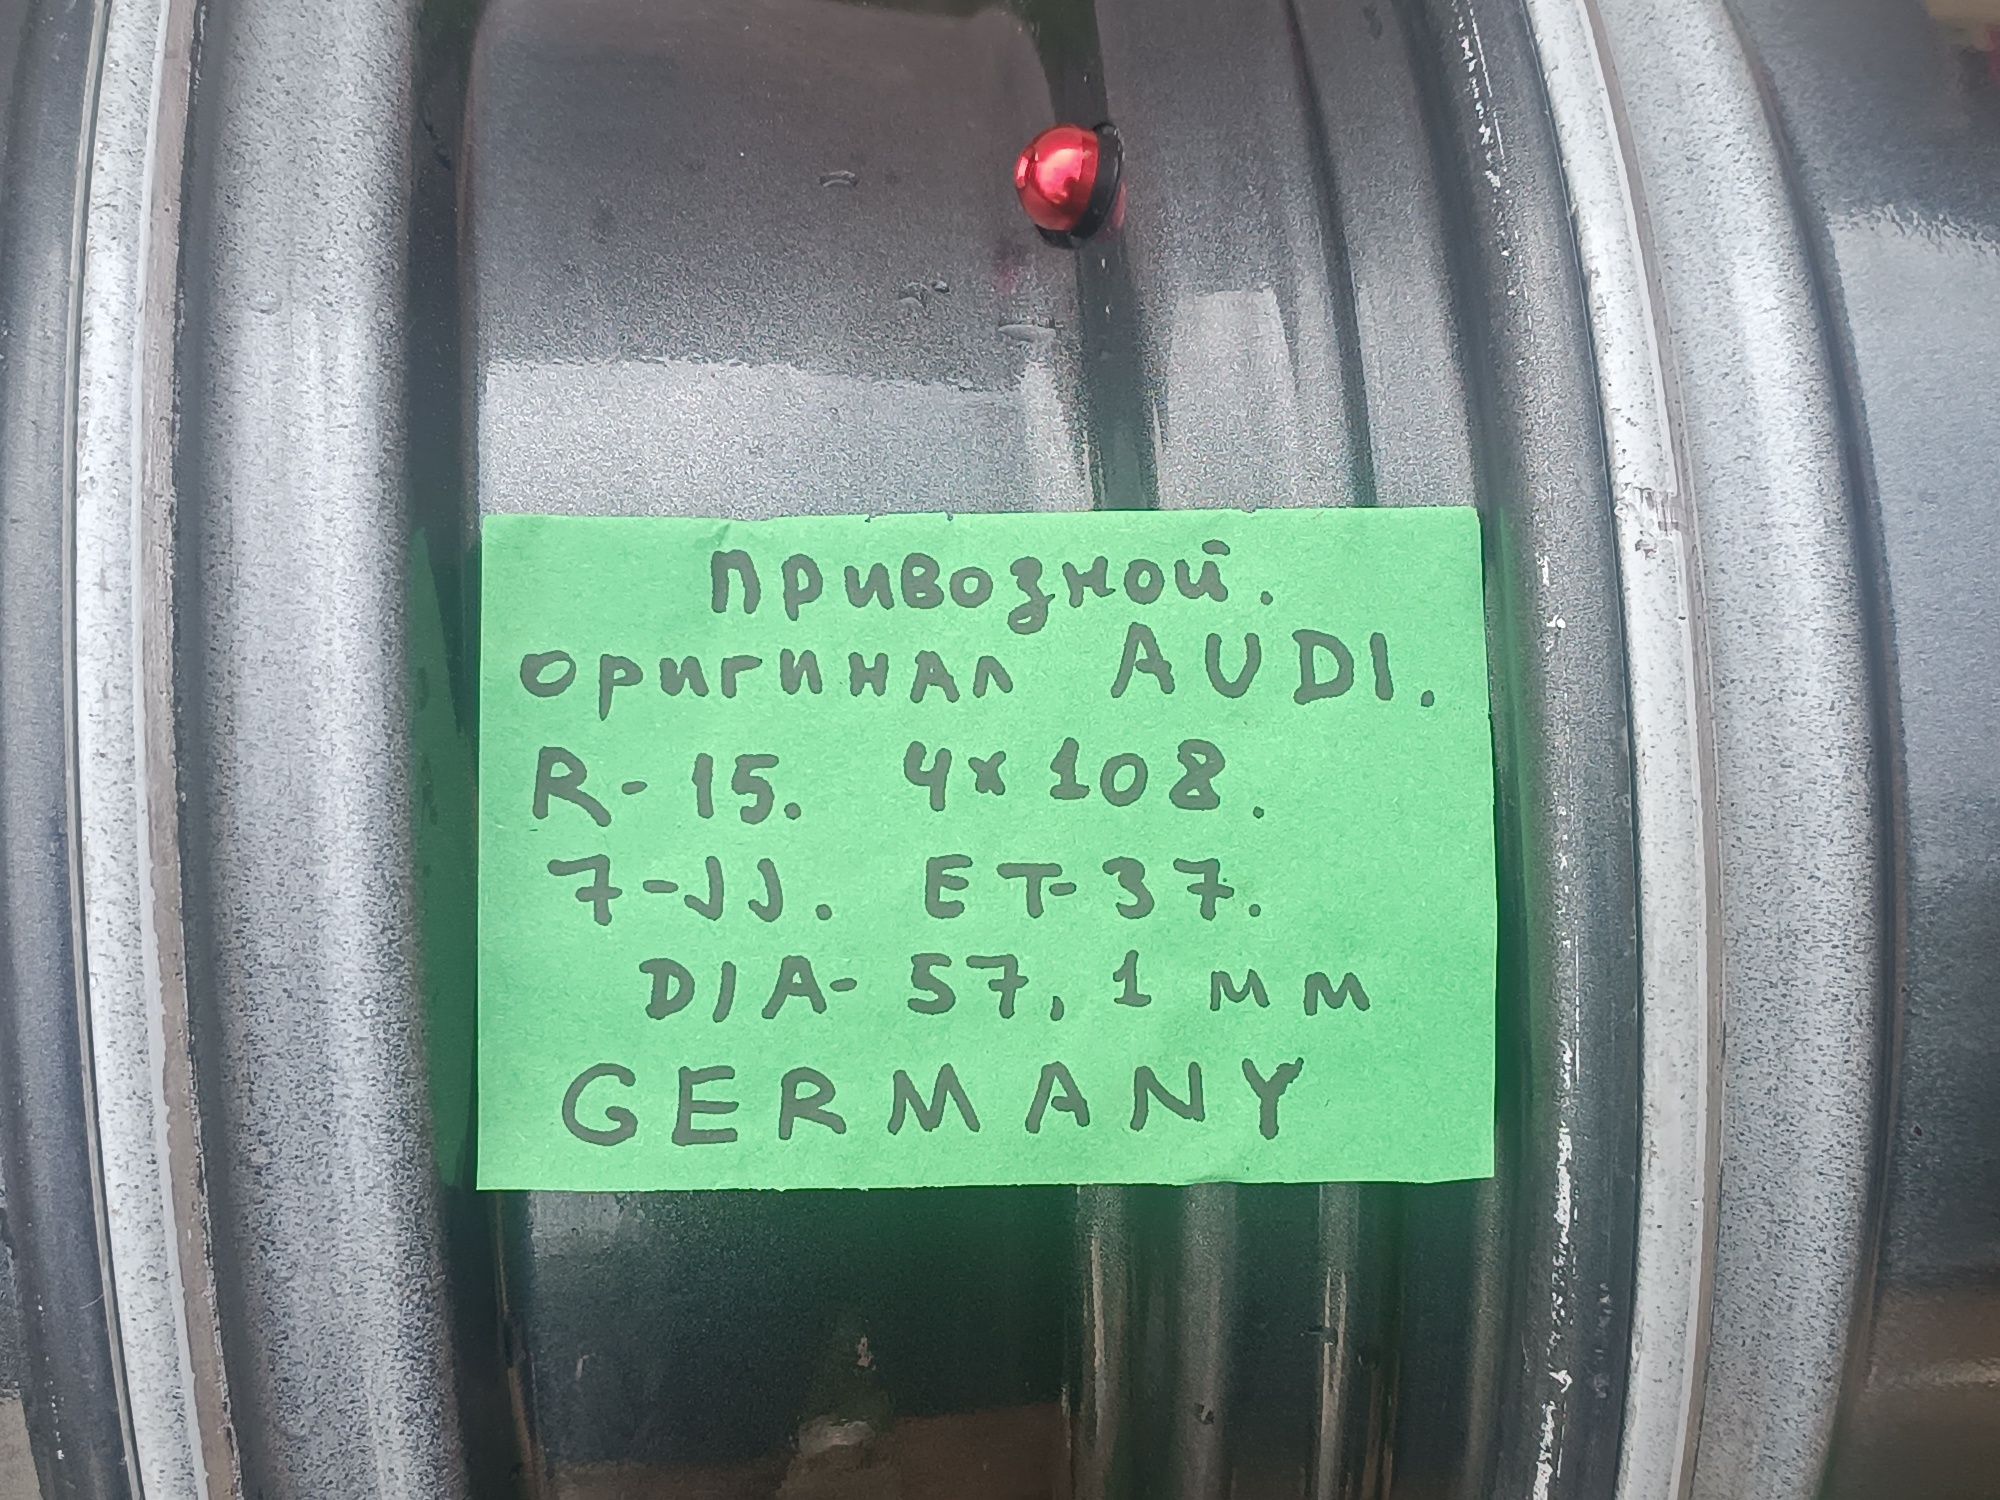 привозной.
оригинал AUDI.
R-15. 4x108.
7-JJ. ET-37.
DIA-57,1 мм
GERMANY